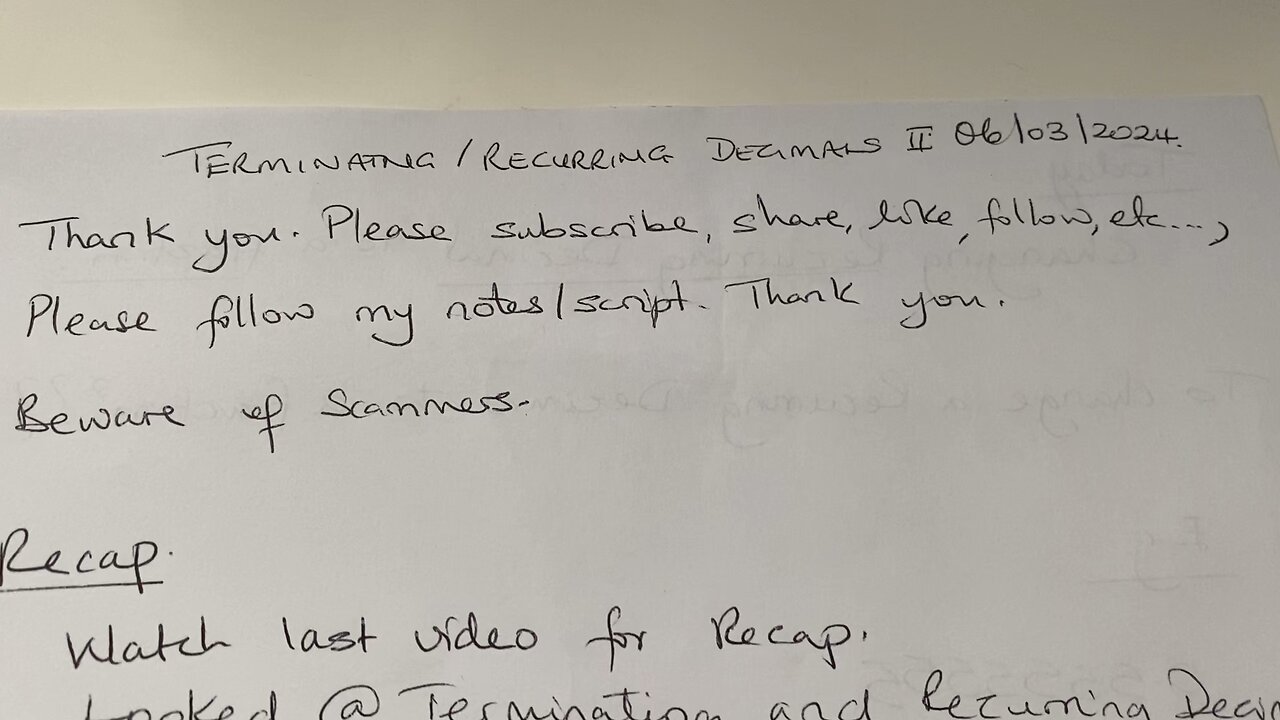 TERMINATNG / RECURRING DECIMALS II 06/03/2024.
Thank you. Please subscribe, share, like, follow, etc...,
Please follow my notes/script. Thank you.
Beware of Scammers.
Recap.
Watch last video for Recap.
Looked @ Terminating and Recurring Deci